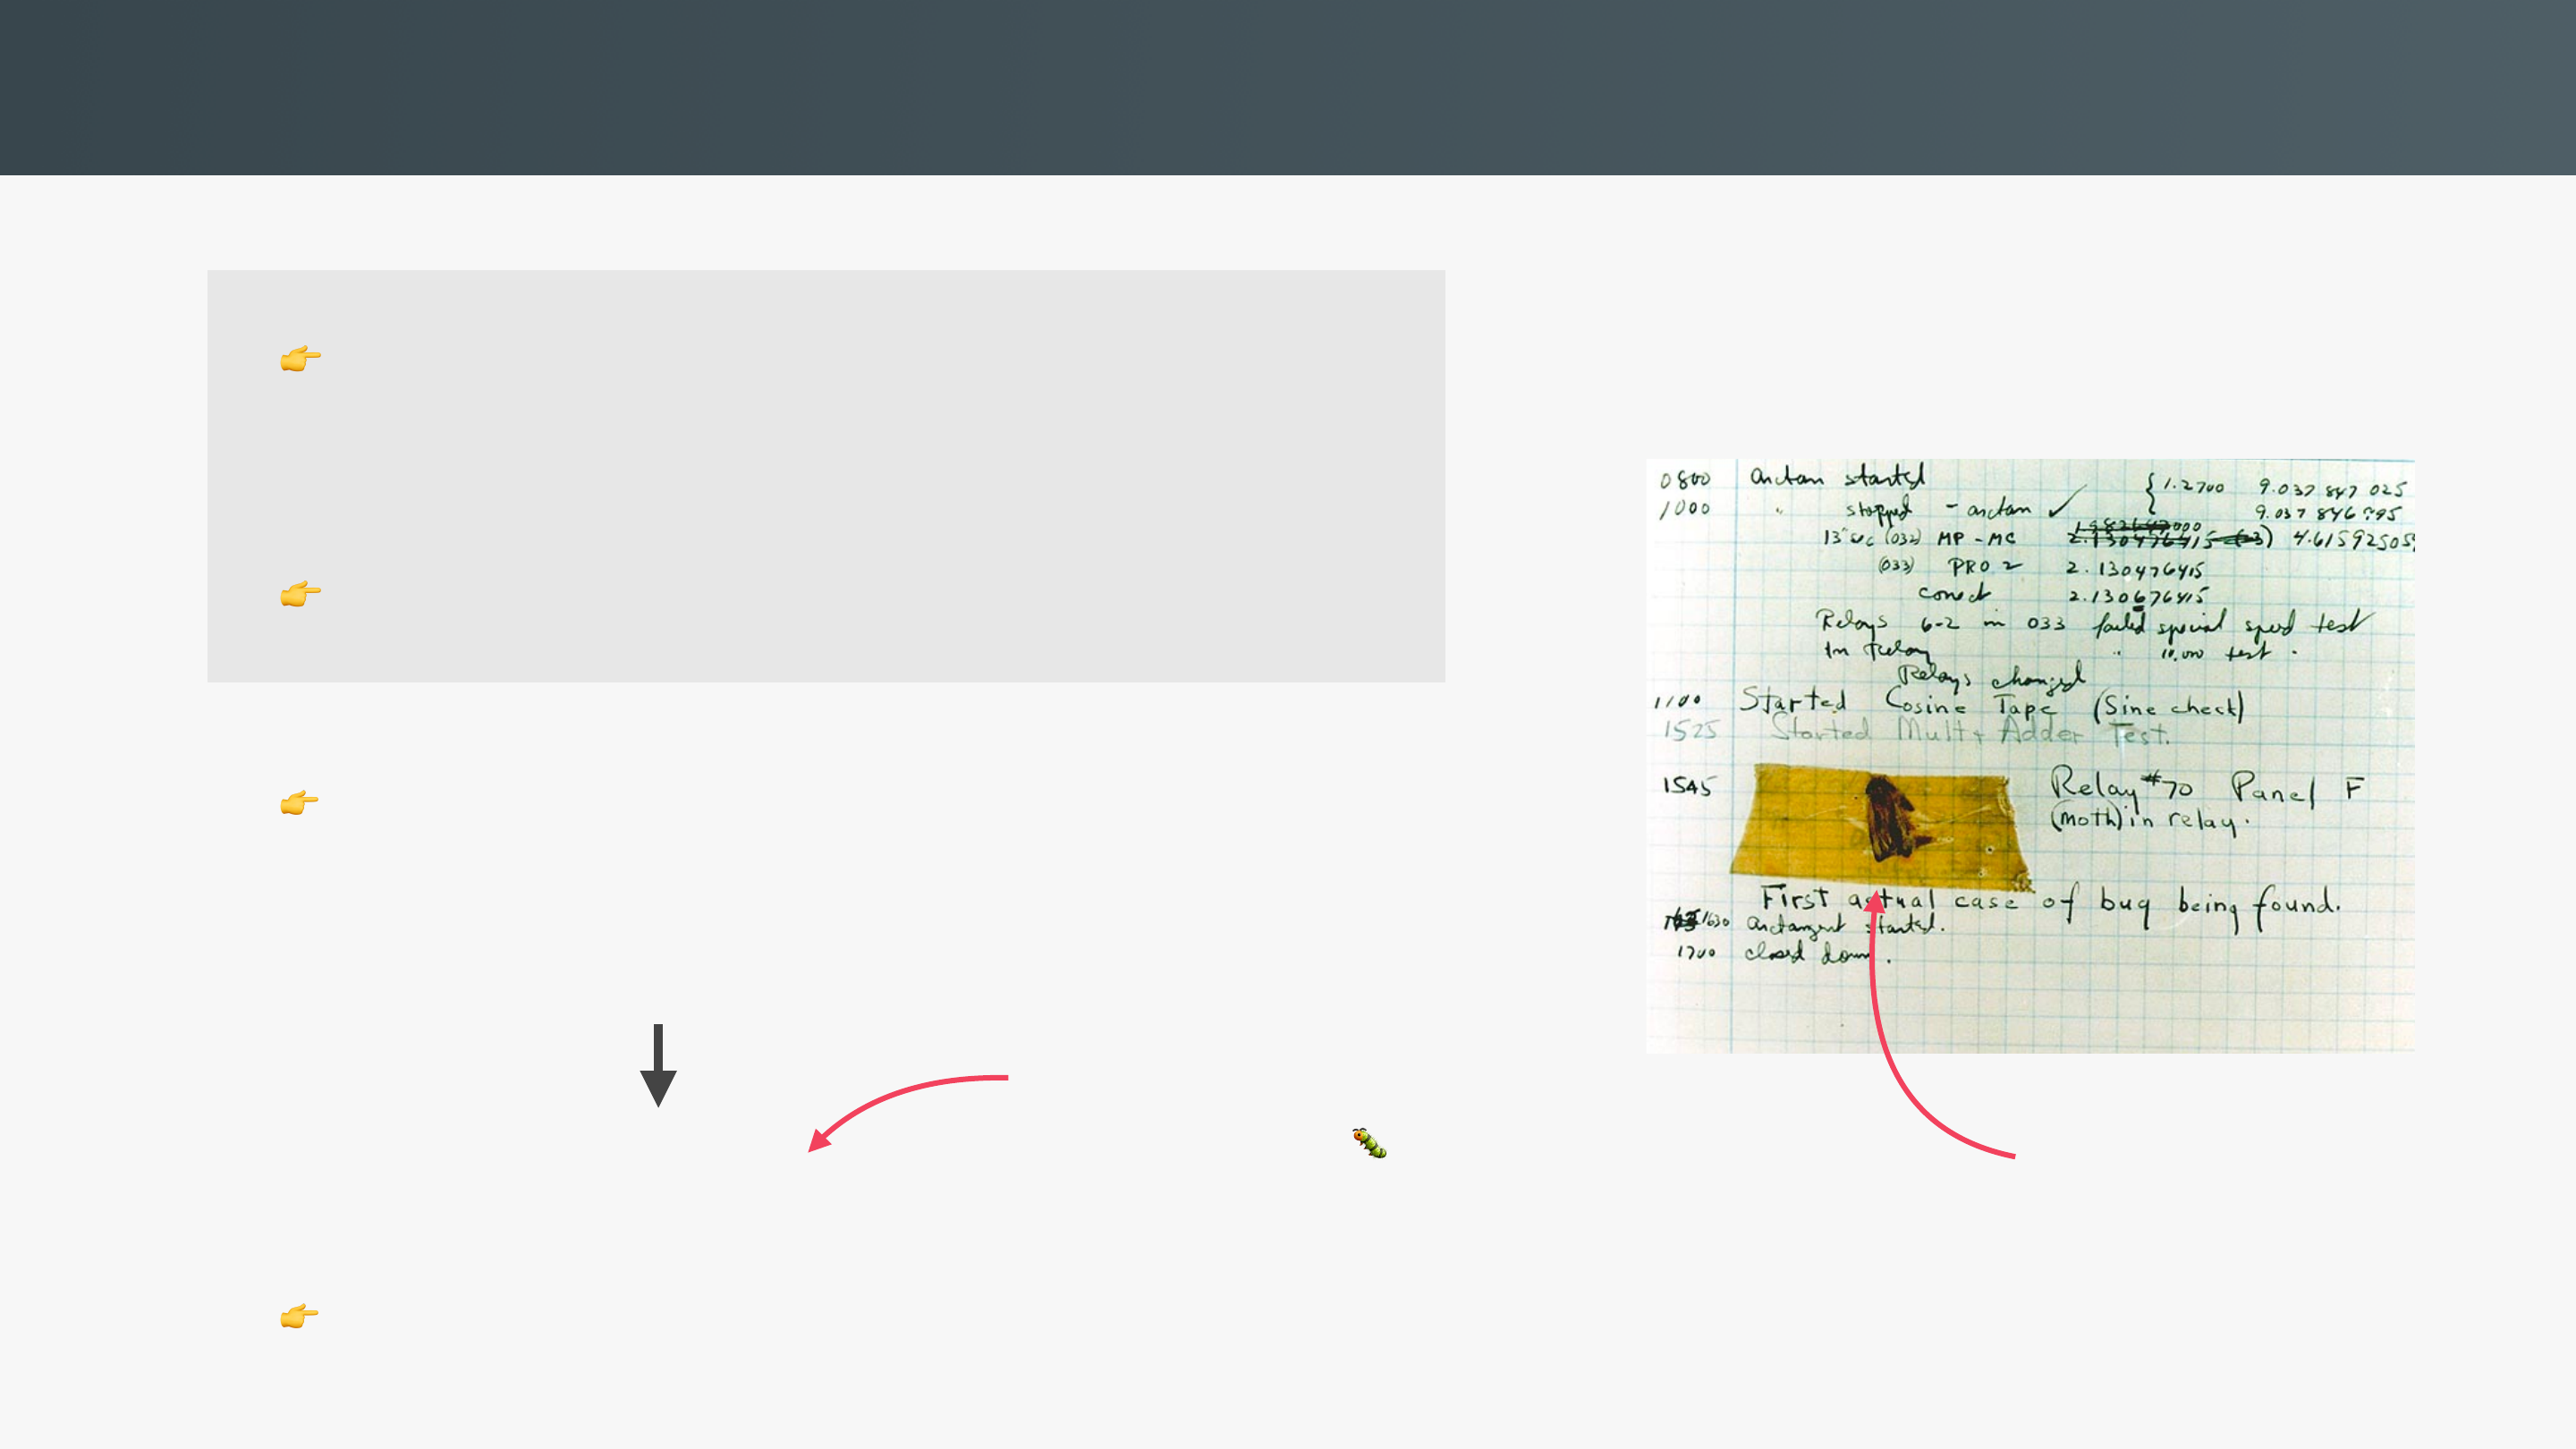 0800 arctan started {1.2700 9.037 847 025
1000 " stopped - arctan ✓ 9.037 846 995
13"uc (032) MP - MC 4.615925059
(033) PRO 2 2.130476415
correct 2.130676415
Relays 6-2 in 033 failed special speed test
In relay " 10,000 test .
Relays changed
1100 Started Cosine Tape (Sine check)
1525 Started Mult + Adder Test.
1545 Relay #70 Panel F
(moth) in relay.
First actual case of bug being found.
1630 arctangent started.
1700 closed down.